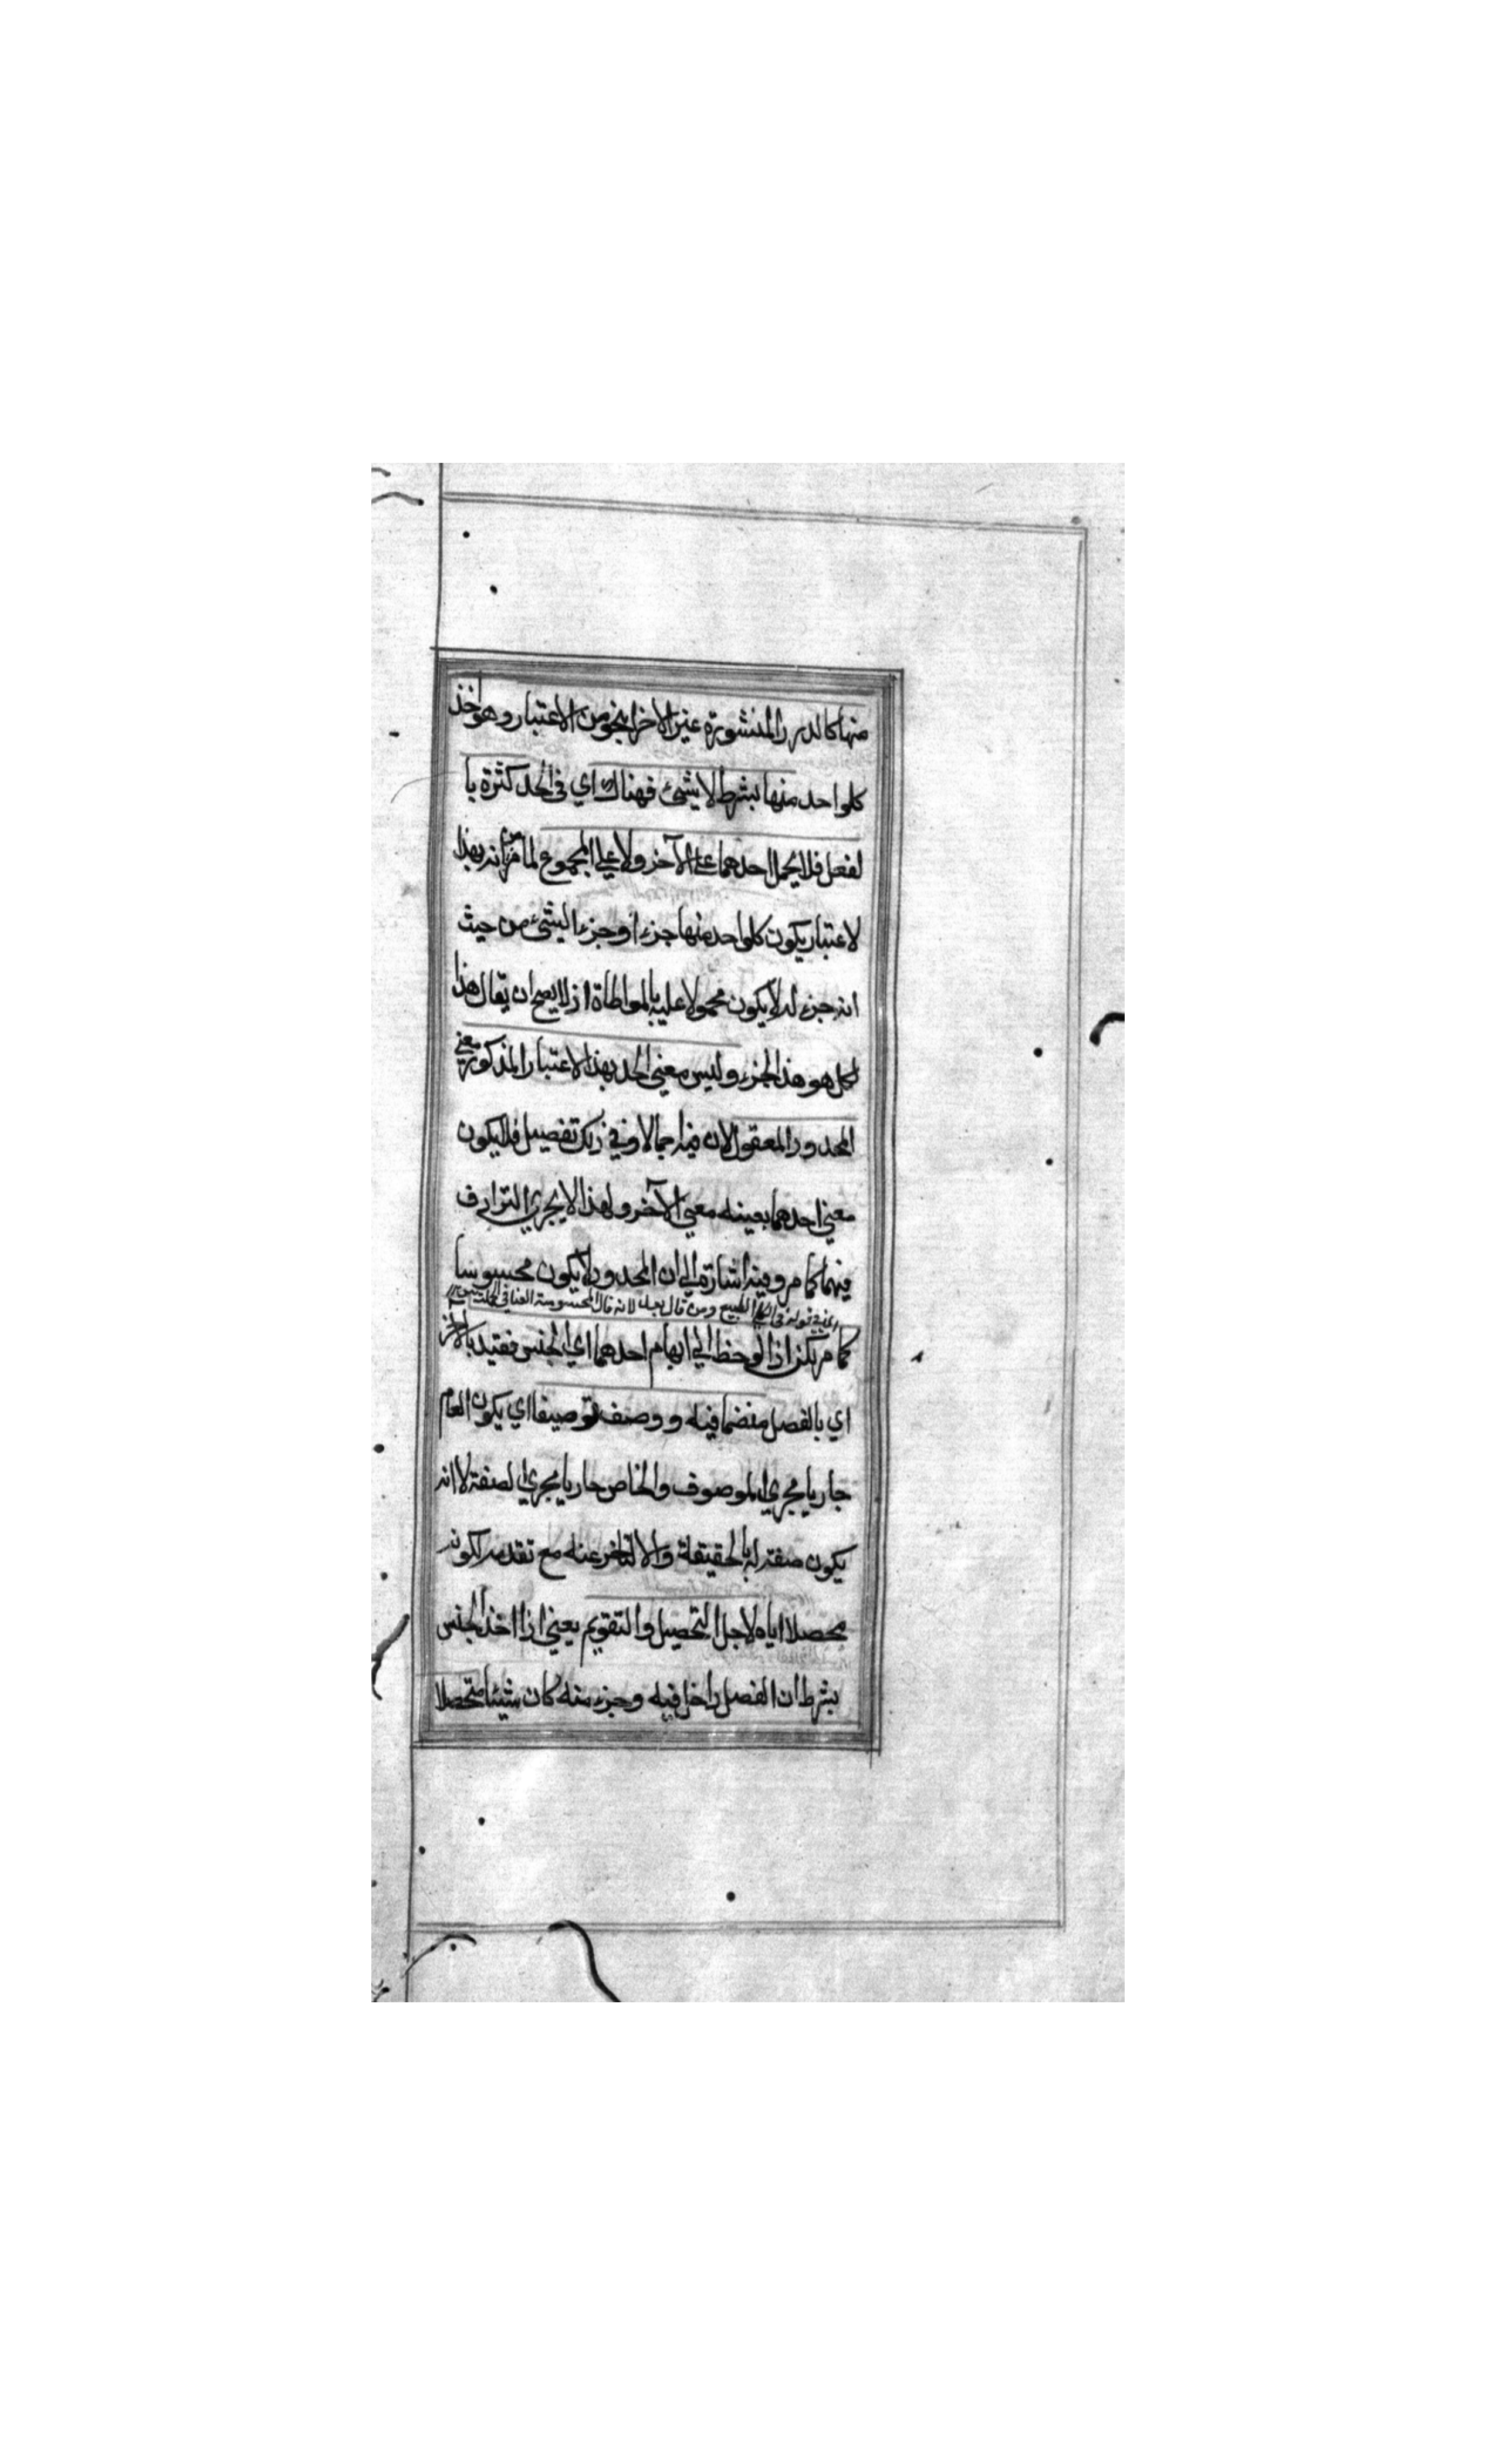 منها كالدرر المنشورة غير الاخر بنحو من الاعتبار وهو اخذ
كلواحد منها بشرط لا يشئ فهناك اي في الحد كثرة با
لفعل فلا يحمل احدهما على الآخر ولا على المجموع لما مر من انه بهذا
لاعتبار يكون كلواحد منها جزءا وجزء الشئ من حيث
انه جزء له لا يكون محمولا عليه بالمواطاة اذ لا يصح ان يقال هذا
لكل هو هذا الجزء وليس معنى الحد بهذا الاعتبار المذكور معنى
المحدود المعقول لان فيه اجمالا وفي ذلك تفصيل فلا يكون
معنى احدهما بعينه معنى الآخر ولهذا لا يجري الترادف
فيهما كما مر وفيه اشارة الى ان المحدود لا يكون محسوسا
في قوله في الكلي الطبيع ومن قال لانه قال المحسوسة
كما مر لكن اذا لوحظ الى ابهام احدهما اي الجنس فقيد بالآخر
اي بالفصل منضما فيه ووصف توصيفا اي يكون العام
جاريا مجرى الموصوف والخاص جاريا مجرى الصفة لا انه
يكون صفة له بالحقيقة والا لتاخر عنه مع تقدمه لكونه
محصلا اياه لاجل التحصيل والتقويم يعني اذا اخذ الجنس
بشرط ان الفصل داخل فيه وجزء منه كان شيئا متحصلا